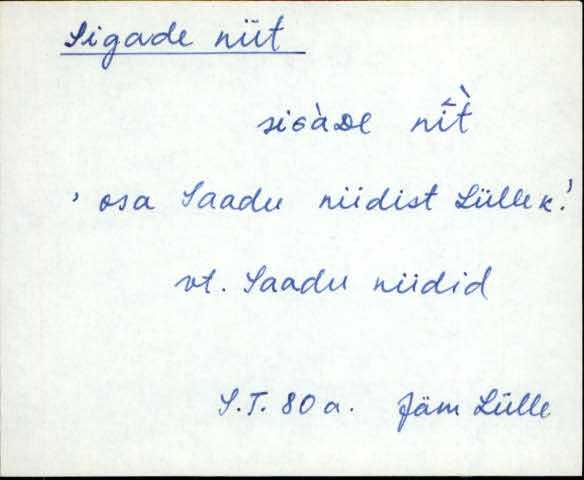 Sigade niit
siɢàᴅe nī̀t
' osa Saadu niidist Lülle k.'
vt. Saadu niidid
S.T. 80 a. Jäm Lülle